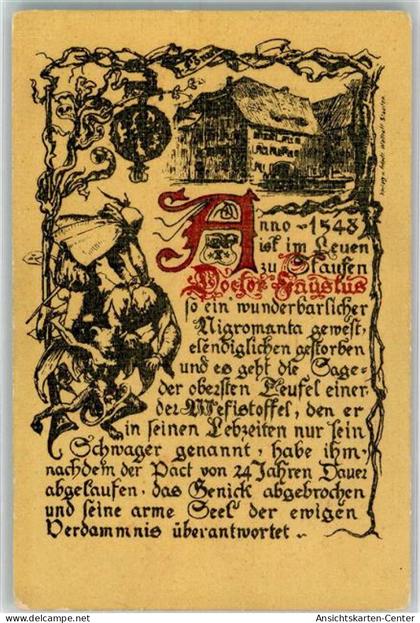 Anno - 1548
ist im Leuen
zu Staufen
Doctor Faustus
so ein wunderbarlicher
Nigromanta gewest,
elendiglichen gestorben
und es geht die Sage-
der obersten Teufel einer.
der Mefistoffel, den er
in seinen Lebzeiten nur sein
Schwager genannt, habe ihm-
nachdem der Pact von 24 Jahren Dauer
abgelaufen, das Genick abgebrochen
und seine arme Seel der ewigen
Verdammnis überantwortet.
Ansichtskarten-Center